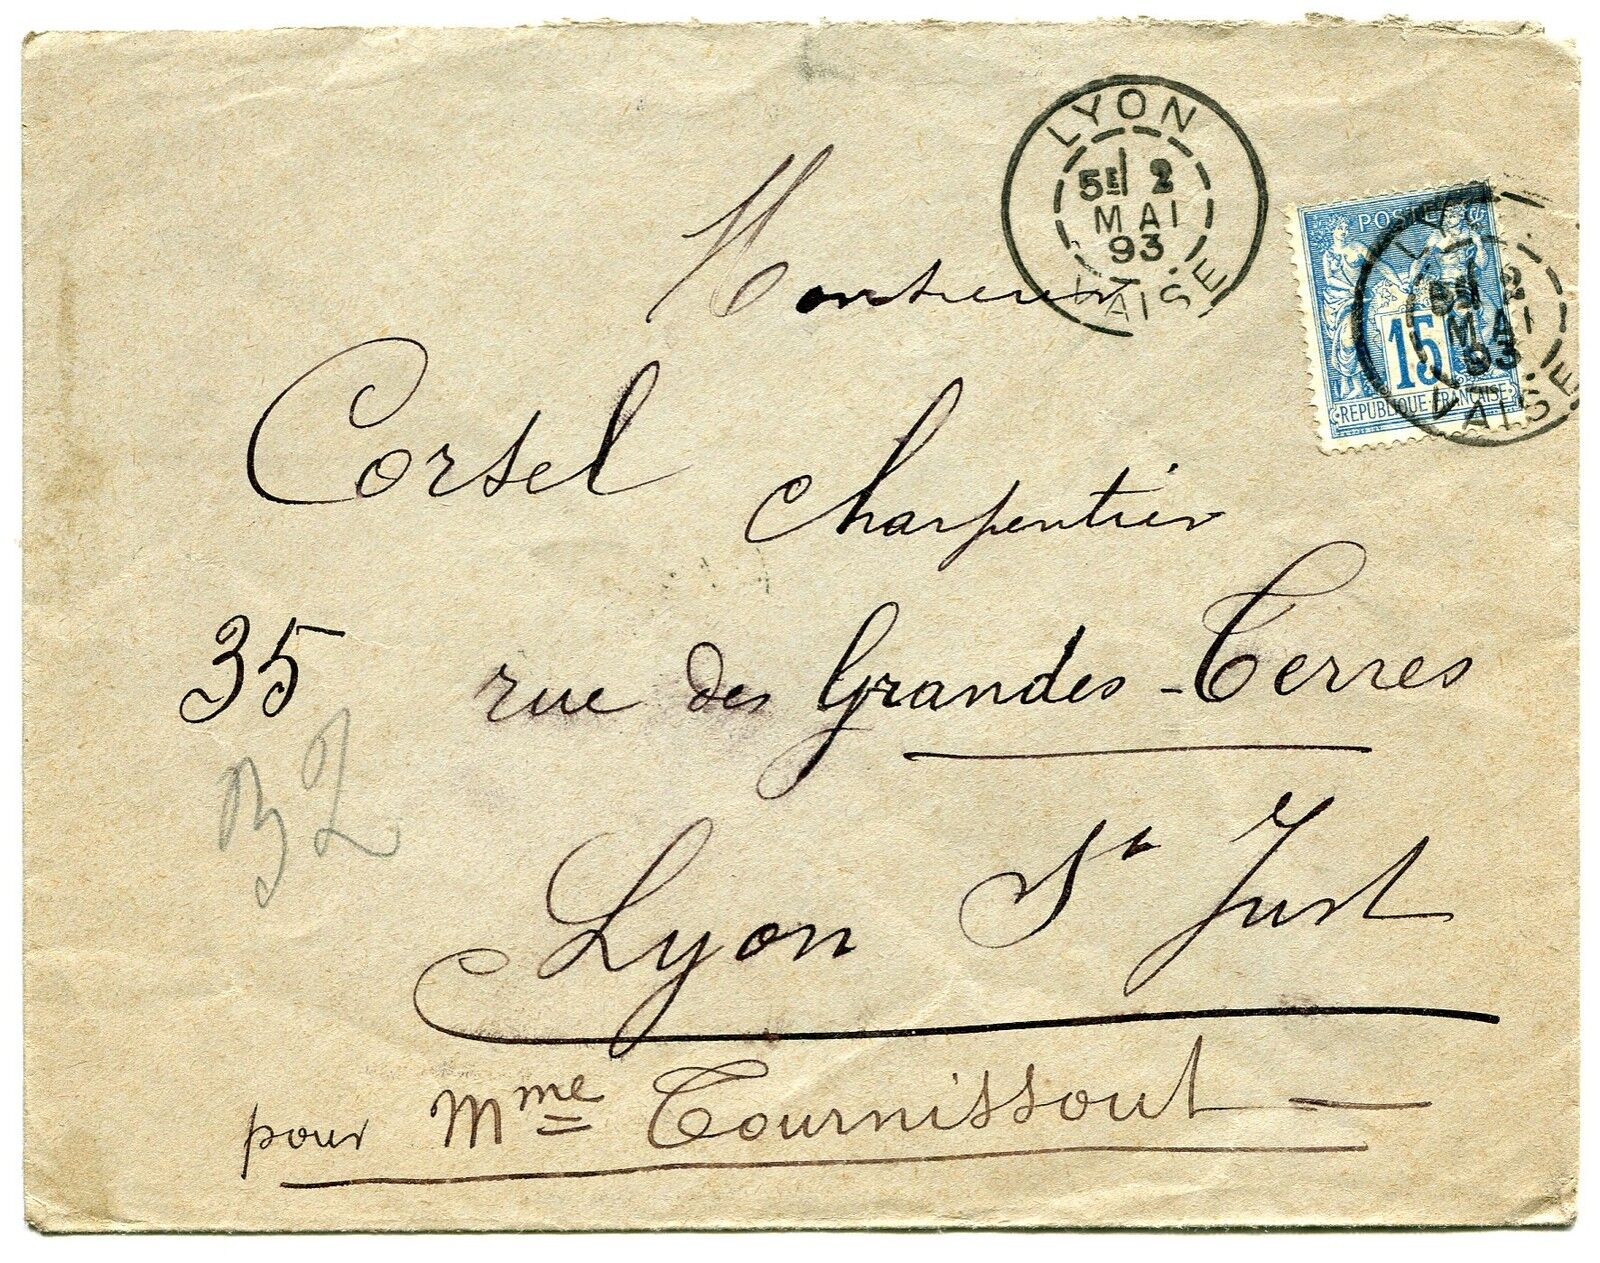 LYON
5E 2
MAI
93
VAISE
POSTE
15
REPUBLIQUE FRANÇAISE
5E 2
MAI
93
VAISE
Monsieur
Corsel Charpentier
35 rue des Grandes-Terres
32
Lyon St Just
pour Mme Tournissout